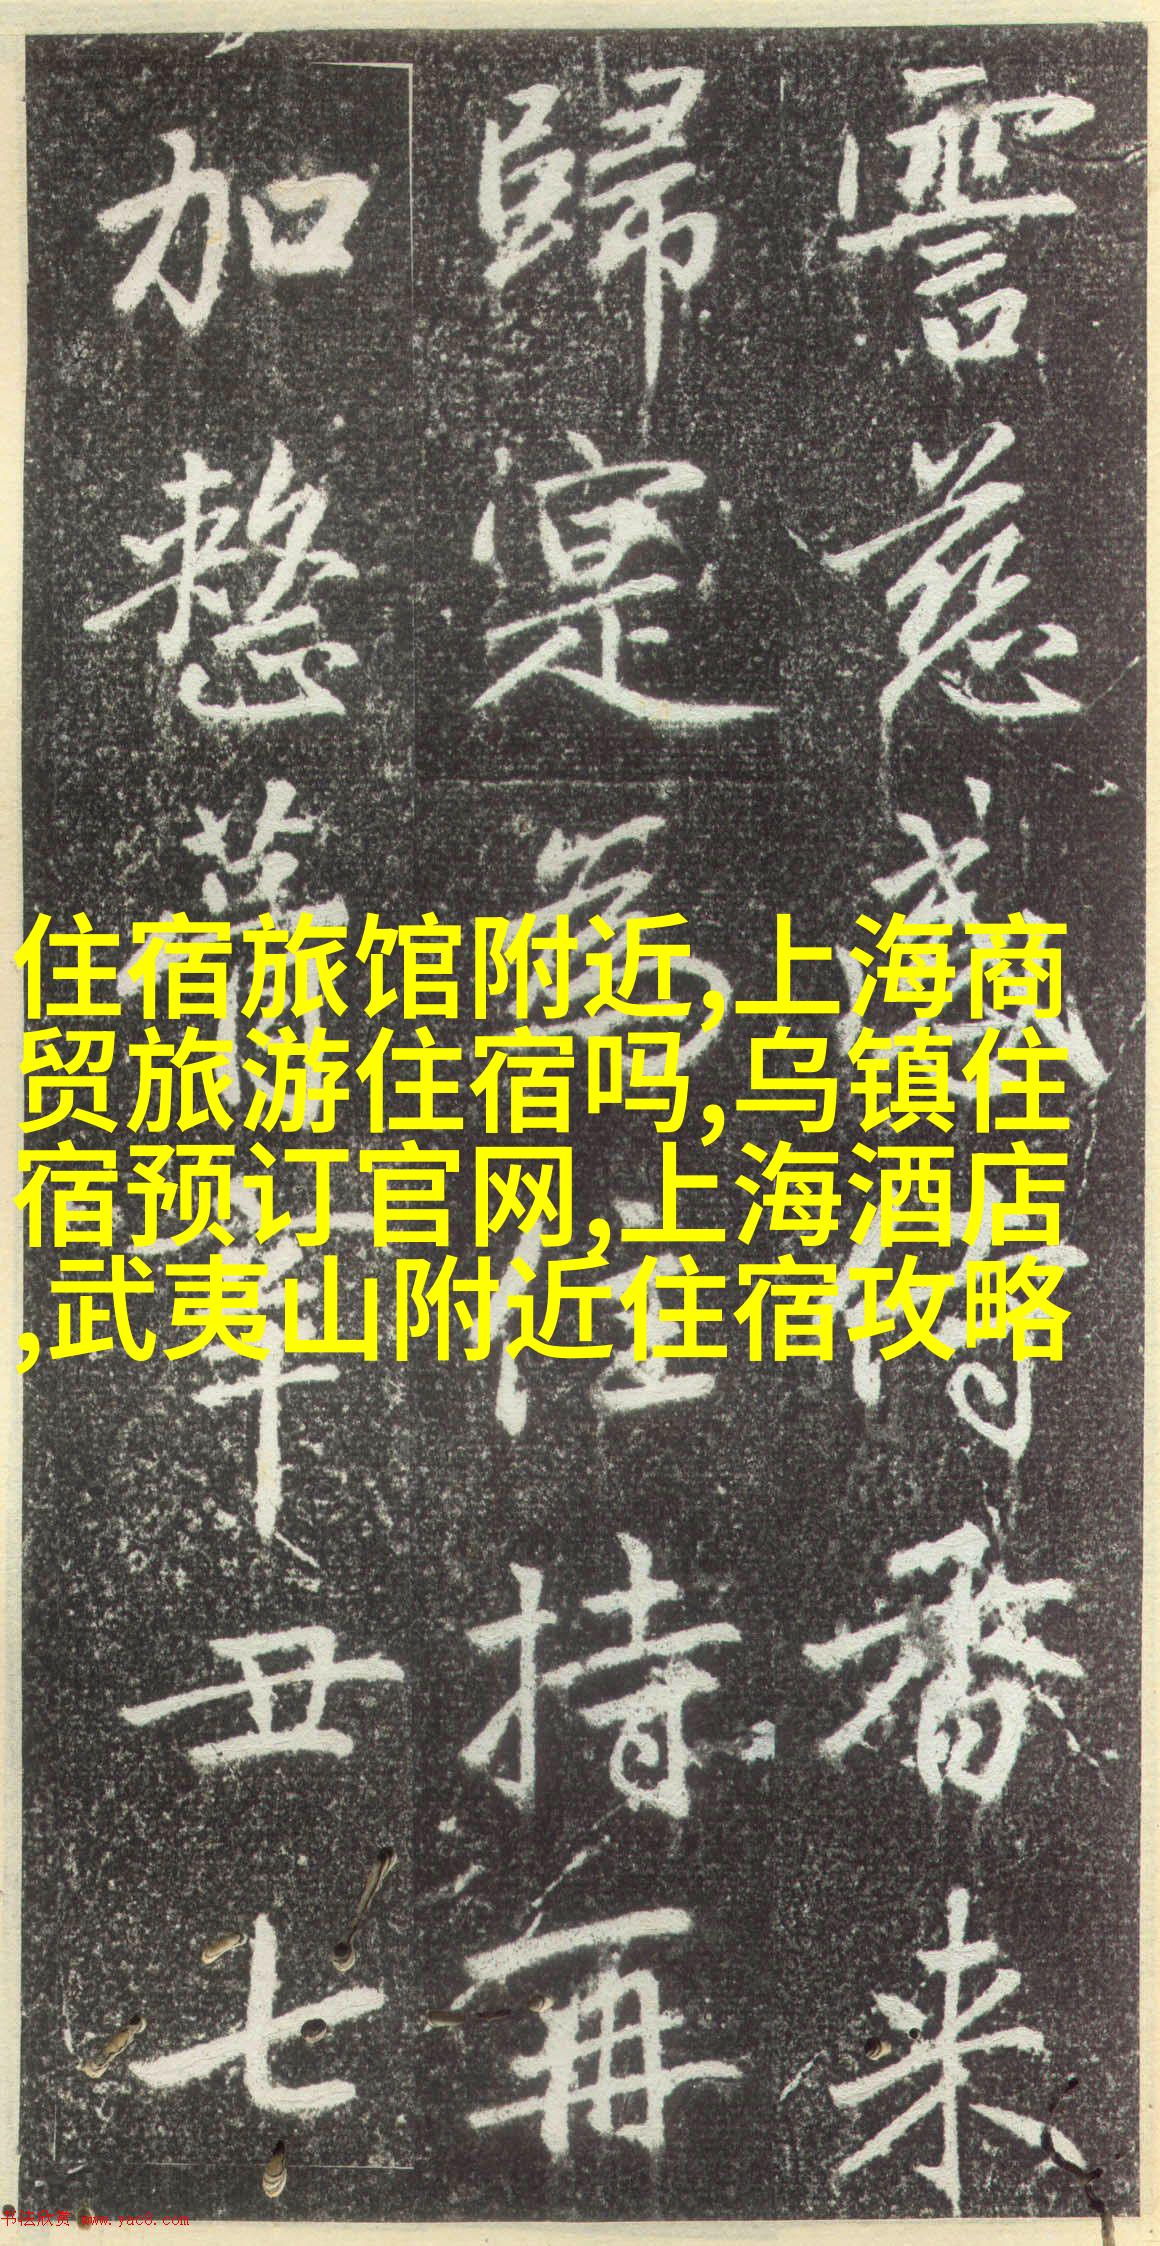 霅慈感番来
歸寔為住持再
加整葺辛丑七
住宿旅馆附近,上海商
贸旅游住宿吗,乌镇住
宿预订官网,上海酒店
,武夷山附近住宿攻略
书法欣赏 www.yac8.com